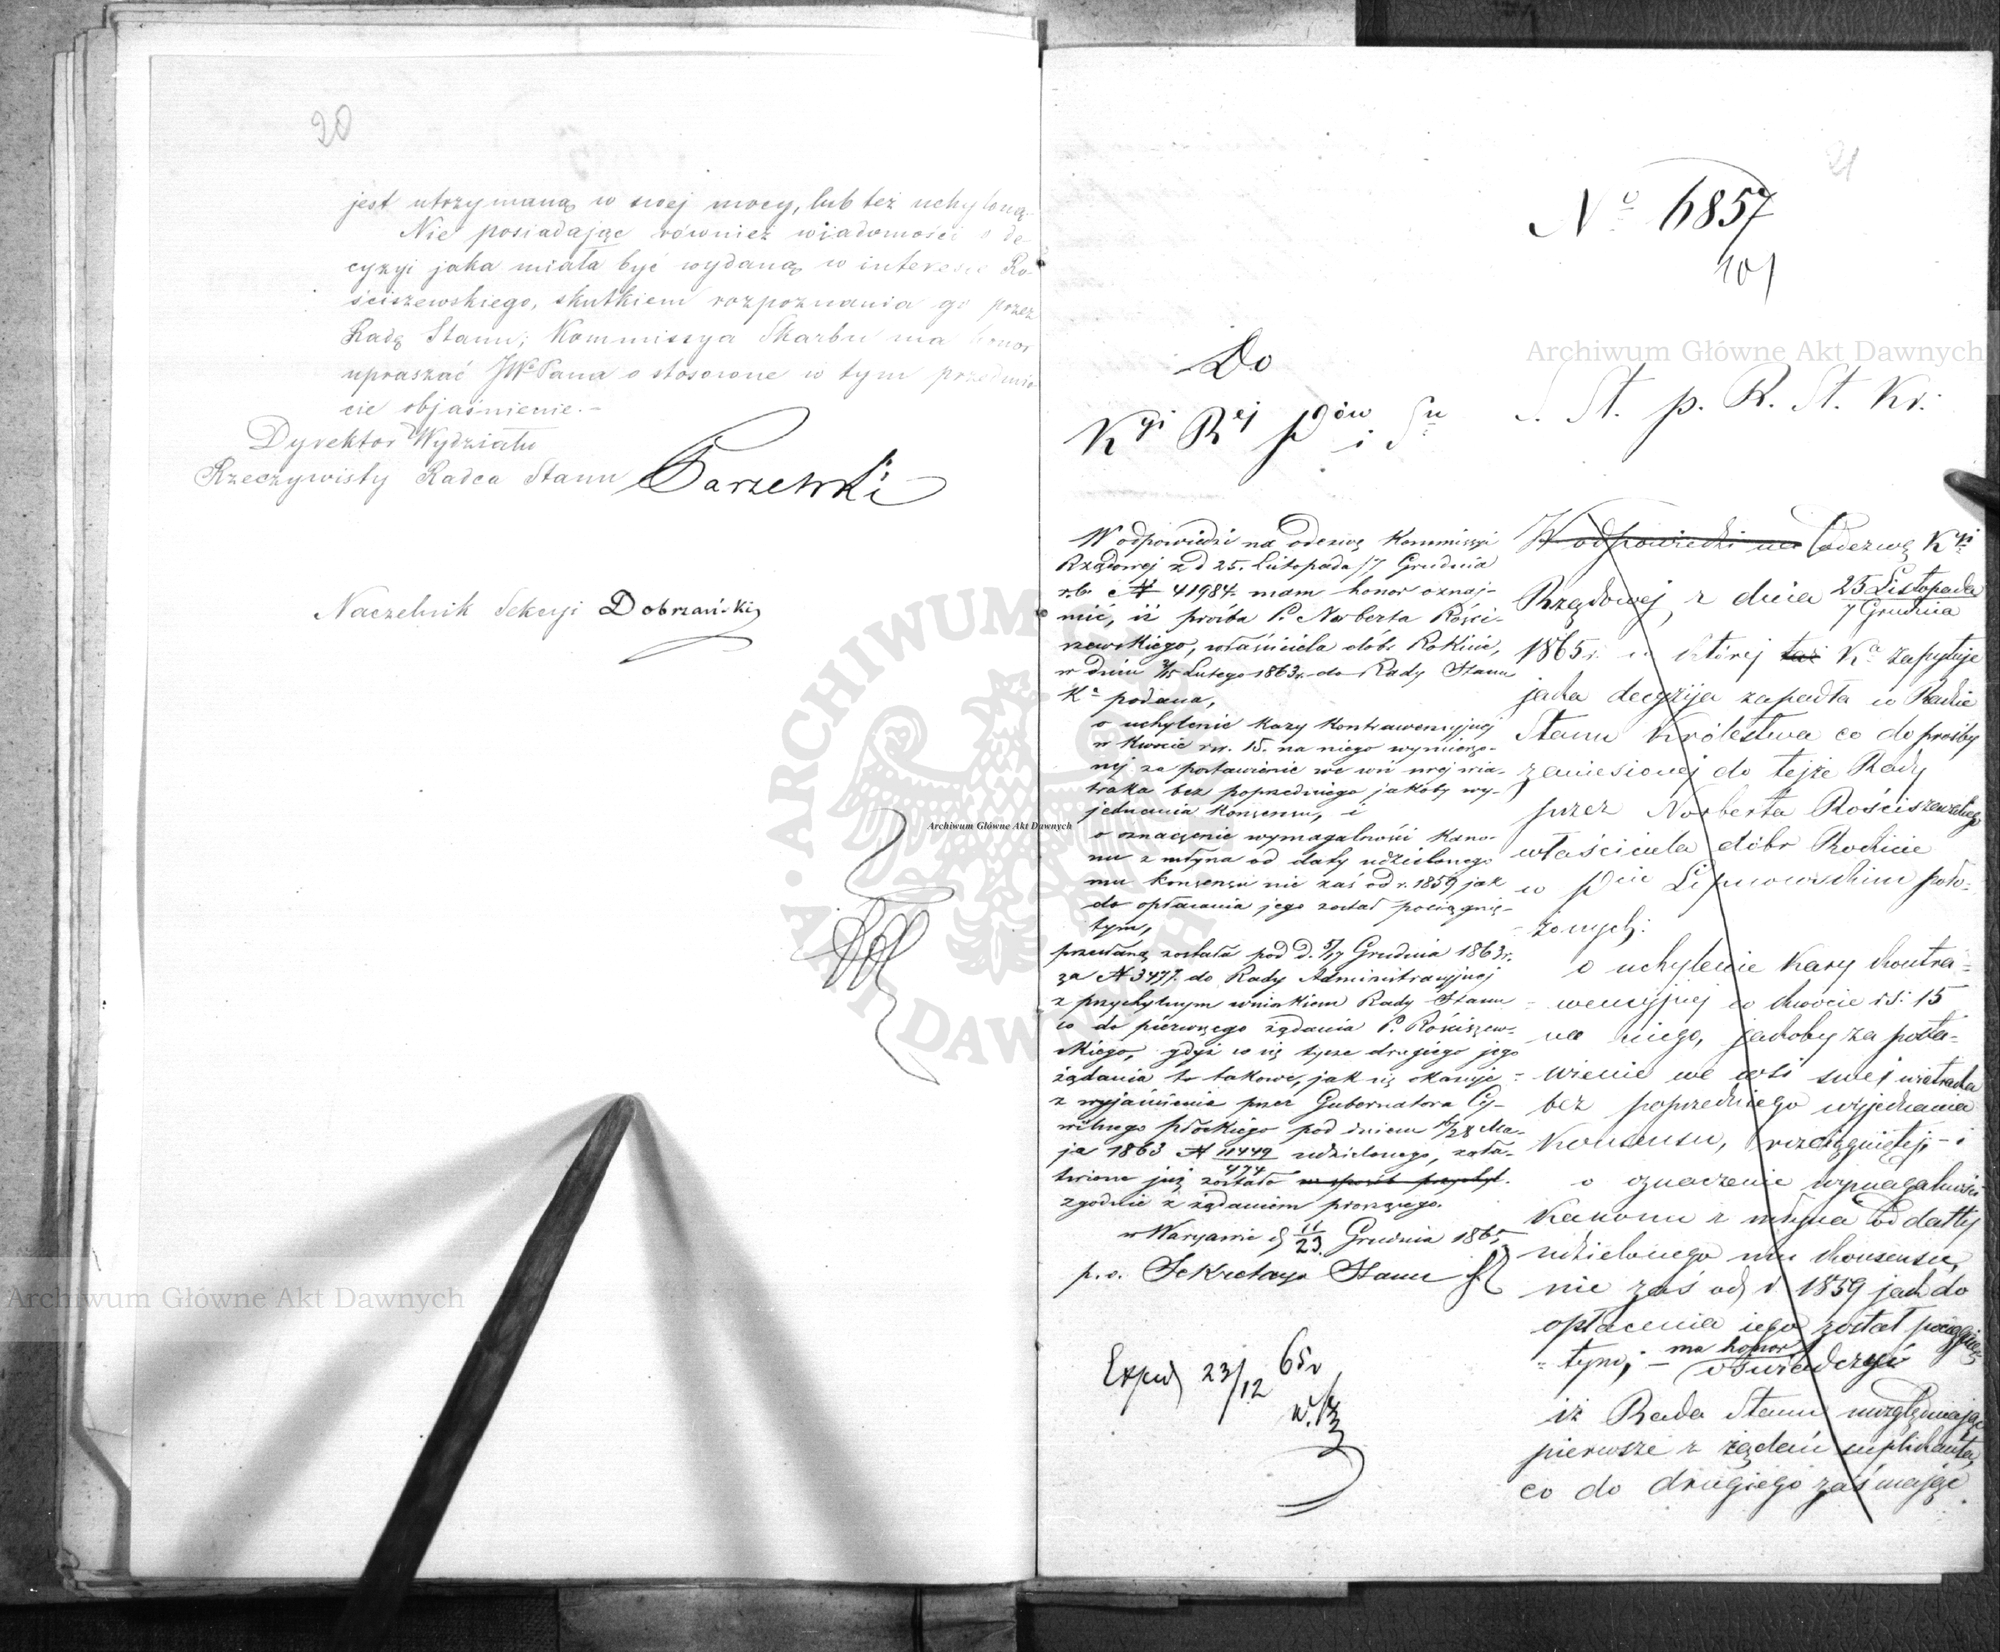 20
jest utrzymaną w swej mocy, lub też uchyloną.
Nie posiadając również wiadomości o de-
cyzyi jaka miała być wydaną w interesie Ro-
ściszewskiego, skutkiem rozpoznania go przez
Radę Stanu; Kommissya Skarbu ma honor
upraszać JW Pana o stosowne w tym przedmio
cie objaśnienie.-
Dyrektor Wydziału
Rzeczywisty Radca Stanu
Naczelnik Sekcyi Dobrzański
21
No 6857
Do
Kyi Rej Pów i Su
W odpowiedzi na odezwę Kommissyi
Rządowej z d 25. Listopada/7 Grudnia
r.b. N 41984. mam honor oznaj-
mić, iż prośba P. Norberta Rości-
szewskiego, właściciela dóbr Rokicie,
w dniu 3/15 Lutego 1863 r. do Rady Stanu
Ka podana,
o uchylenie kary kontrawencyjnej
w kwocie rsr. 15. na niego wymierzo-
nej za postawienie we wsi swej wia-
traka bez poprzedniego jakoby wy-
jednania konsensu, i
o oznaczenie wymagalności kano-
nu z młyna od daty udzielonego
mu konsensu nie zaś od r. 1859 jak
do opłacania jego został pociągnię-
tym,
przesłaną została pod d. 5/17 Grudnia 1863 r.
za N 3477. do Rady Administracyjnej
z przychylnym wnioskiem Rady Stanu
co do pierwszego żądania P. Rościszew-
skiego, gdyż co się tycze drugiego jego
żądania to takowe, jak się okazuje
z wyjaśnienia przez Gubernatora Cy-
wilnego Płockiego pod dniem 16/28 Ma-
ja 1863 N 11449/474 udzielonego, zała-
twione już zostało w sposób przychyl.
zgodnie z żądaniem proszącego.
w Warszawie d 11/23. Grudnia 1865 r.
p.o. Sekretarza Stanu
Exped 23/12 65 r
S. St. p. R. St. Kr.
W odpowiedzi na Odezwę Kyi
Rządowej z dnia 25 Listopada/7 Grudnia
1865 r. w której taż Ka zapytuje
jaka decyzija zapadła w Radzie
Stanu Królestwa co do prośby
zaniesionej do tejże Rady
przez Norberta Rościszewskiego
właściciela dóbr Rokicie
w Pcie Lipnowskim poło-
żonych:
o uchylenie kary kontra-
wencyjnej w kwocie rs. 15
na niego, jakoby za posta-
wienie we wsi swej wiatraka
bez poprzedniego wyjednania
Konsensu, rozciągniętej, - i
o oznaczenie wymagalności
Kanonu z młyna od datty
udzielonego mu konsensu,
nie zaś od r 1859 jak do
opłacenia jego został pociągnię-
tym; - ma honor oświadczyć
iż Rada Stanu uwzględniając
pierwsze z żądań suplikanta,
co do drugiego zaś mając
Archiwum Główne Akt Dawnych
Archiwum Główne Akt Dawnych
Archiwum Główne Akt Dawnych
ARCHIWUM GŁÓWNE AKT DAWNYCH